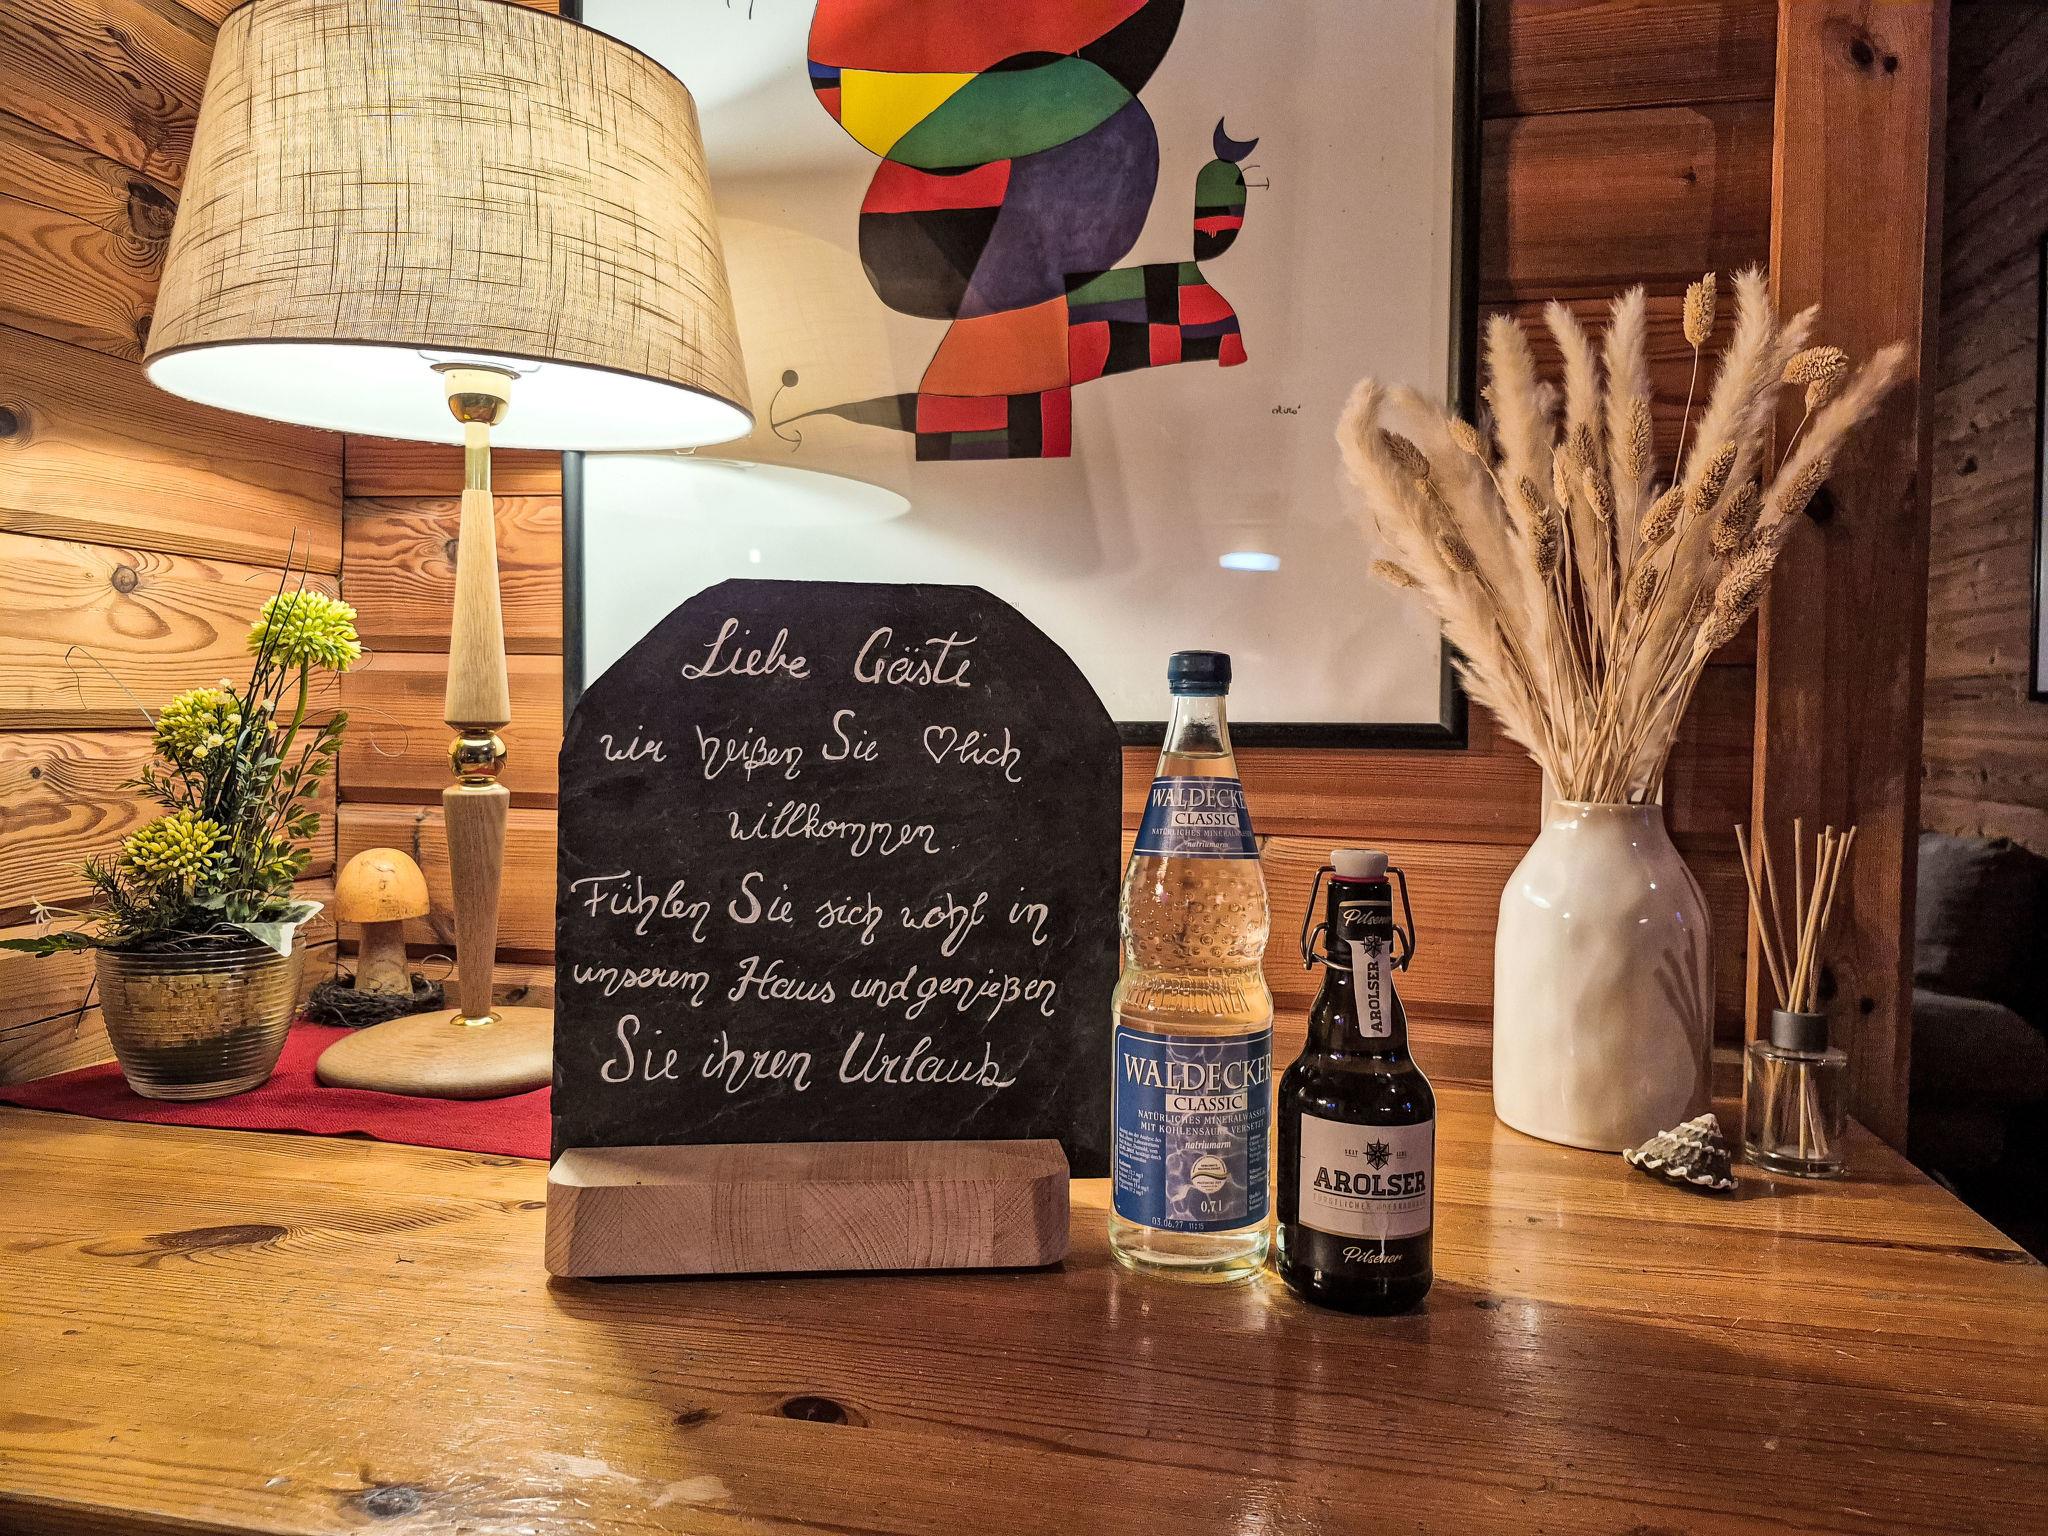 Liebe Gäste
wir heißen Sie ♡lich
willkommen.
Fühlen Sie sich wohl in
unserem Haus und genießen
Sie ihren Urlaub
WALDECKER
CLASSIC
NATÜRLICHES MINERALWASSER
natriumarm
WALDECKER
CLASSIC
NATÜRLICHES MINERALWASSER
MIT KOHLENSÄURE VERSETZT
natriumarm
0,7l
03.06.27 11:15
Pilsener
AROLSER
SEIT
AROLSER
Pilsener